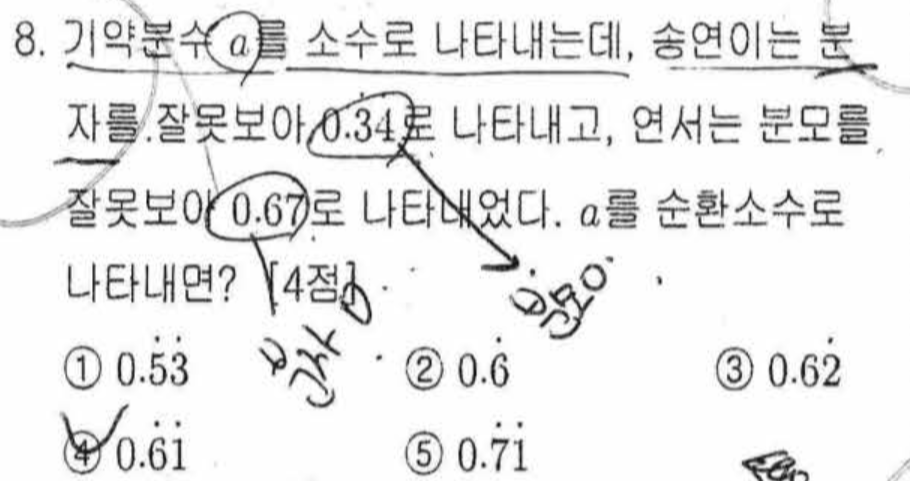 8. 기약분수 a를 소수로 나타내는데, 송연이는 분
자를 잘못보아 0.3̇4̇로 나타내고, 연서는 분모를
잘못보아 0.67̇로 나타내었다. a를 순환소수로
나타내면? [4점]
분자
분모
① 0.5̇3̇ ② 0.6̇ ③ 0.62̇
④ 0.6̇1̇ ⑤ 0.7̇1̇